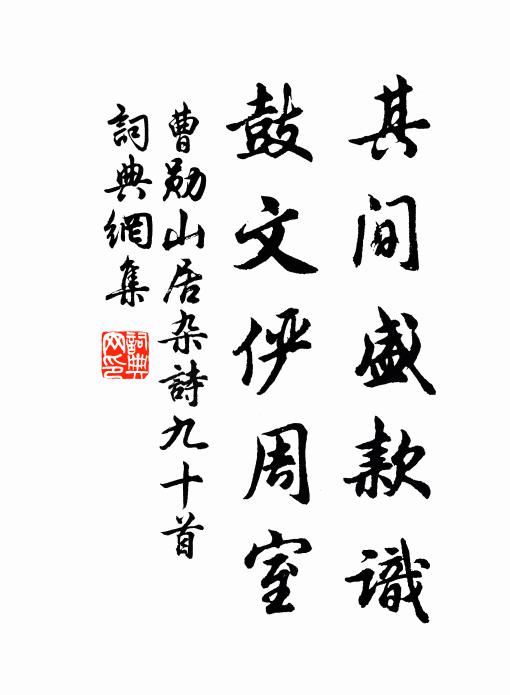 其间盛款識
鼓文伻周室
曹勋山居杂詩九十首
詞典網集
詞典
网印